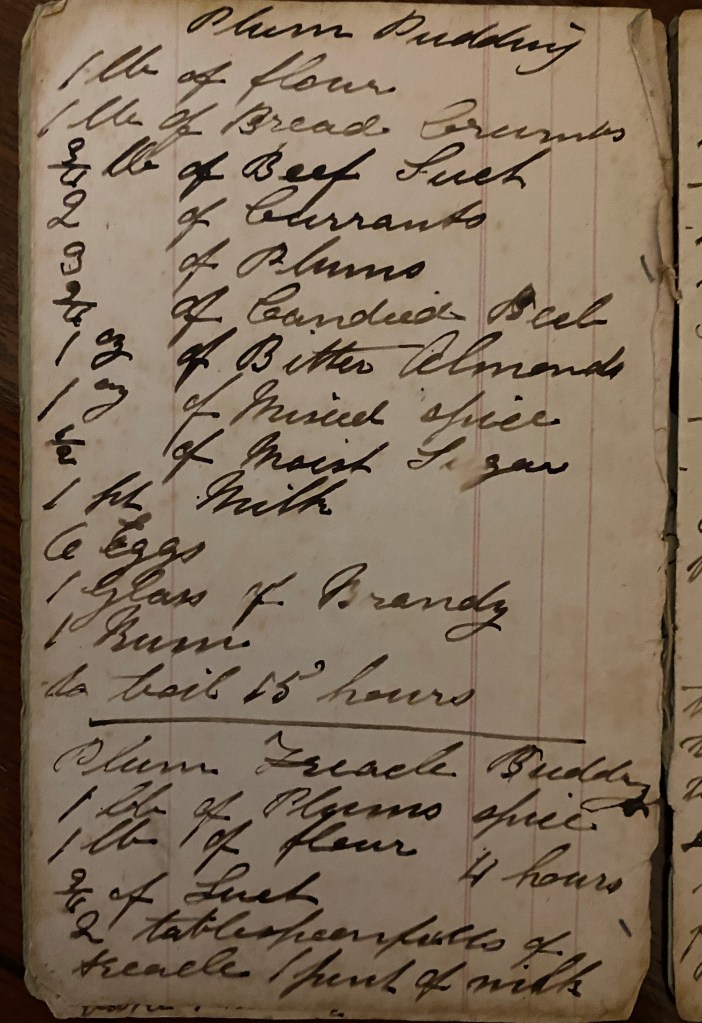 Plum Pudding
1 lb of flour
1 lb of Bread Crumbs
3/4 lb of Beef Suet
2 of Currants
3 of Plums
3/4 of Candied Peel
1 oz of Bitter Almonds
1 oz of Mixed spice
1/2 of Moist Sugar
1 pt Milk
6 Eggs
1 Glass of Brandy
1 Rum
to boil 15 hours
Plum Treacle Pudding
1 lb of Plums spice
1 lb of flour 4 hours
3/4 of Suet
2 tablespoonfulls of
treacle 1 pint of milk